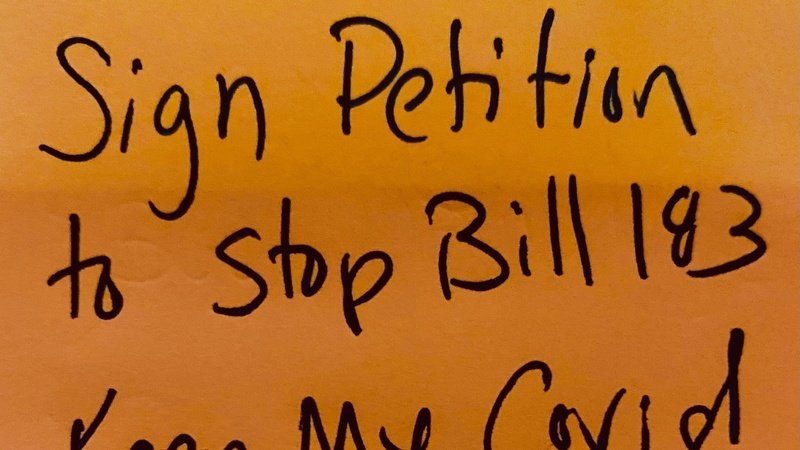 Sign Petition
to Stop Bill 183
Keep My Covid